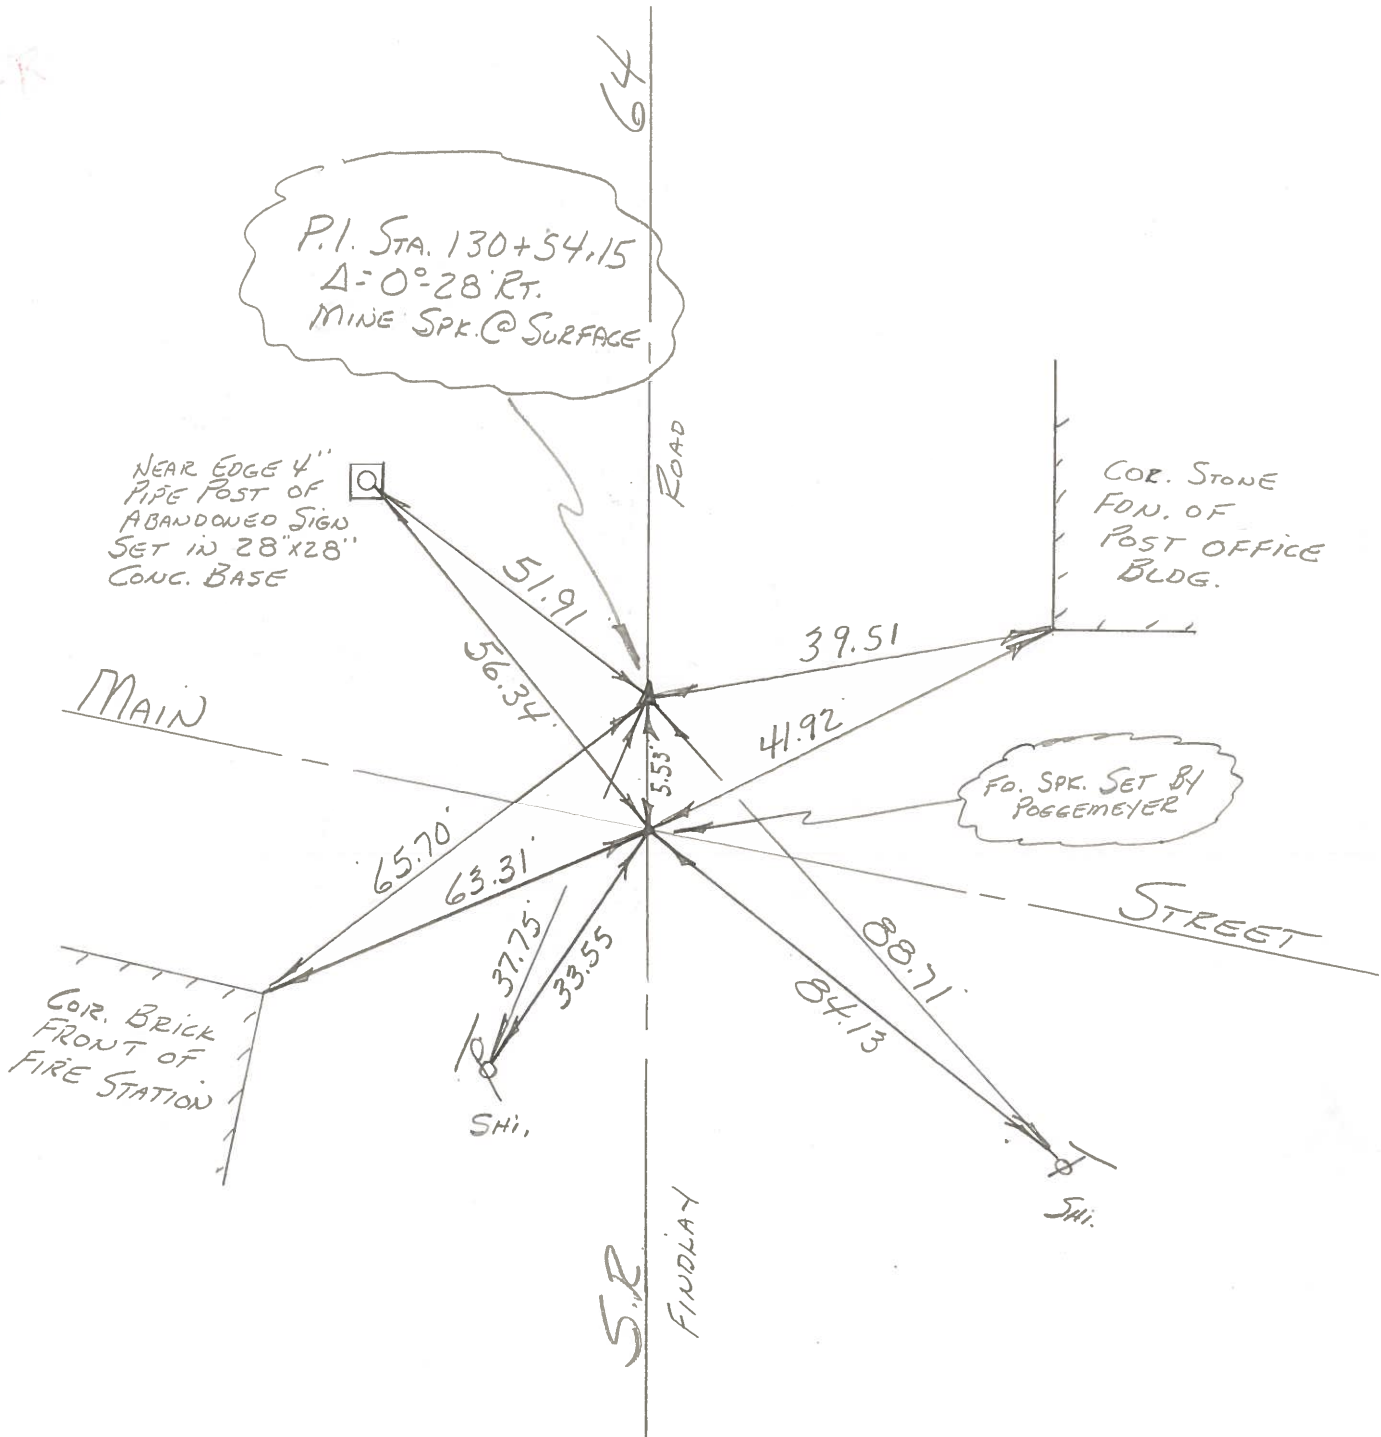 64
P.I. STA. 130+54.15
Δ=0°-28' RT.
MINE SPK. @ SURFACE
ROAD
NEAR EDGE 4"
PIPE POST OF
ABANDONED SIGN
SET IN 28"X28"
CONC. BASE
COR. STONE
FDN. OF
POST OFFICE
BLDG.
51.91'
56.34'
39.51
41.92'
5.53'
MAIN
FD. SPK. SET BY
POGGEMEYER
65.70'
63.31'
37.75'
33.55
88.71'
84.13
STREET
COR. BRICK
FRONT OF
FIRE STATION
SHI.
SHI.
S.R
FINDLAY